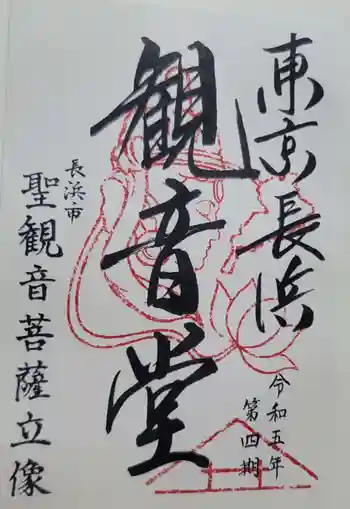 東京長浜
観音堂
令和五年
第四期
長浜市
聖観音菩薩立像